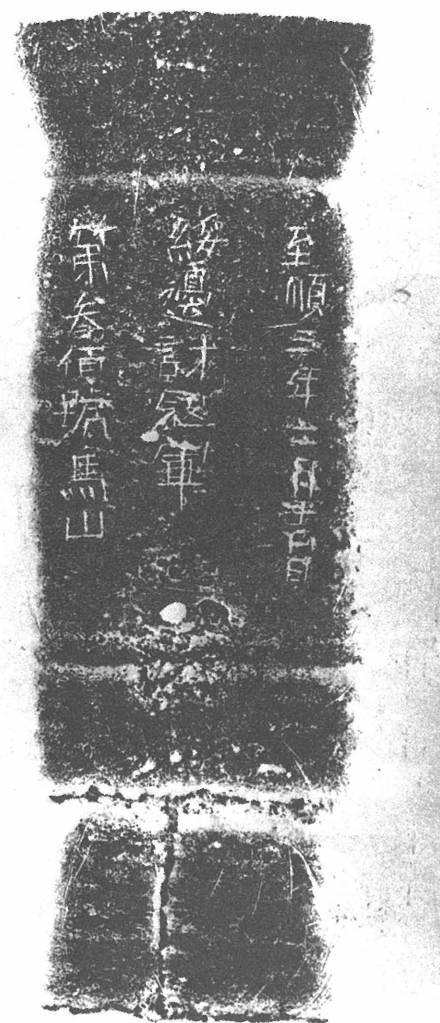 至順三年二月十四日
綏邊討寇軍
第叁佰號馬山